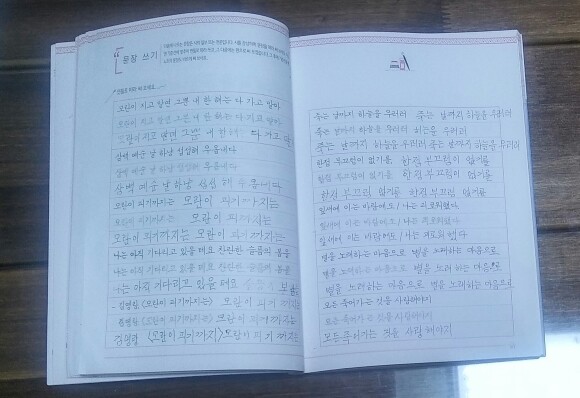 문장 쓰기
모란이 지고 말면 그뿐 내 한 해는 다 가고 말아
모란이 지고 말면 그뿐 내 한 해는 다 가고 말아
모란이 지고 말면 그뿐 내 한 해는 다 가고
삼백 예순 날 하냥 섭섭해 우옵내다
삼백 예순 날 하냥 섭섭해 우옵내다
삼백 예순 날 하냥 섭섭해 우옵내다
모란이 피기까지는 모란이 피기까지는
모란이 피기까지는 모란이 피기까지는
모란이 피기까지는 모란이 피기까지는
나는 아직 기다리고 있을 테요 찬란한 슬픔의 봄을
나는 아직 기다리고 있을 테요 찬란한 슬픔의 봄을
나는 아직 기다리고 있을 테요
김영랑 <모란이 피기까지는> 모란이 피기
김영랑 <모란이 피기까지는> 모란이 피기까지는
김영랑 <모란이 피기까지> 모란이 피기 까지는
죽는 날까지 하늘을 우러러 죽는 날까지 하늘을 우러러
죽는 날까지 하늘을 우러러 하늘을 우러러
죽는 날까지 하늘을 우러러 죽는 날까지 하늘을 우러러
한점 부끄럼이 없기를 한점 부끄럼이 없기를
한점 부끄럼이 없기를 한점 부끄럼이 없기를
한점 부끄럼 없기를 한점 부끄럼 없기를
잎새에 이는 바람에도 / 나는 괴로워했다
잎새에 이는 바람에도 / 나는 괴로워했다
잎새에 이는 바람에도 / 나는 괴로워했다
별을 노래하는 마음으로 별을 노래하는 마음으로
별을 노래하는 마음으로 별을 노래하는 마음으로
별을 노래하는 마음으로 별을 노래하는 마음으로
모든 죽어가는 것을 사랑해야지
모든 죽어가는 것을 사랑해야지
모든 죽어가는 것을 사랑해야지